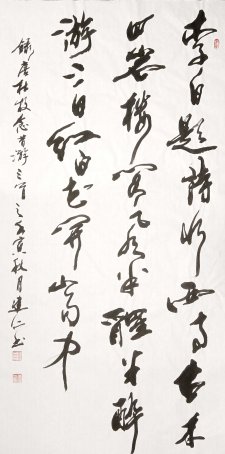 李白題詩水西寺古木
回岩樓閣风半醒半醉
游三日红白花開山雨中
錄唐杜牧念昔游三首之壬寅秋月建仁书